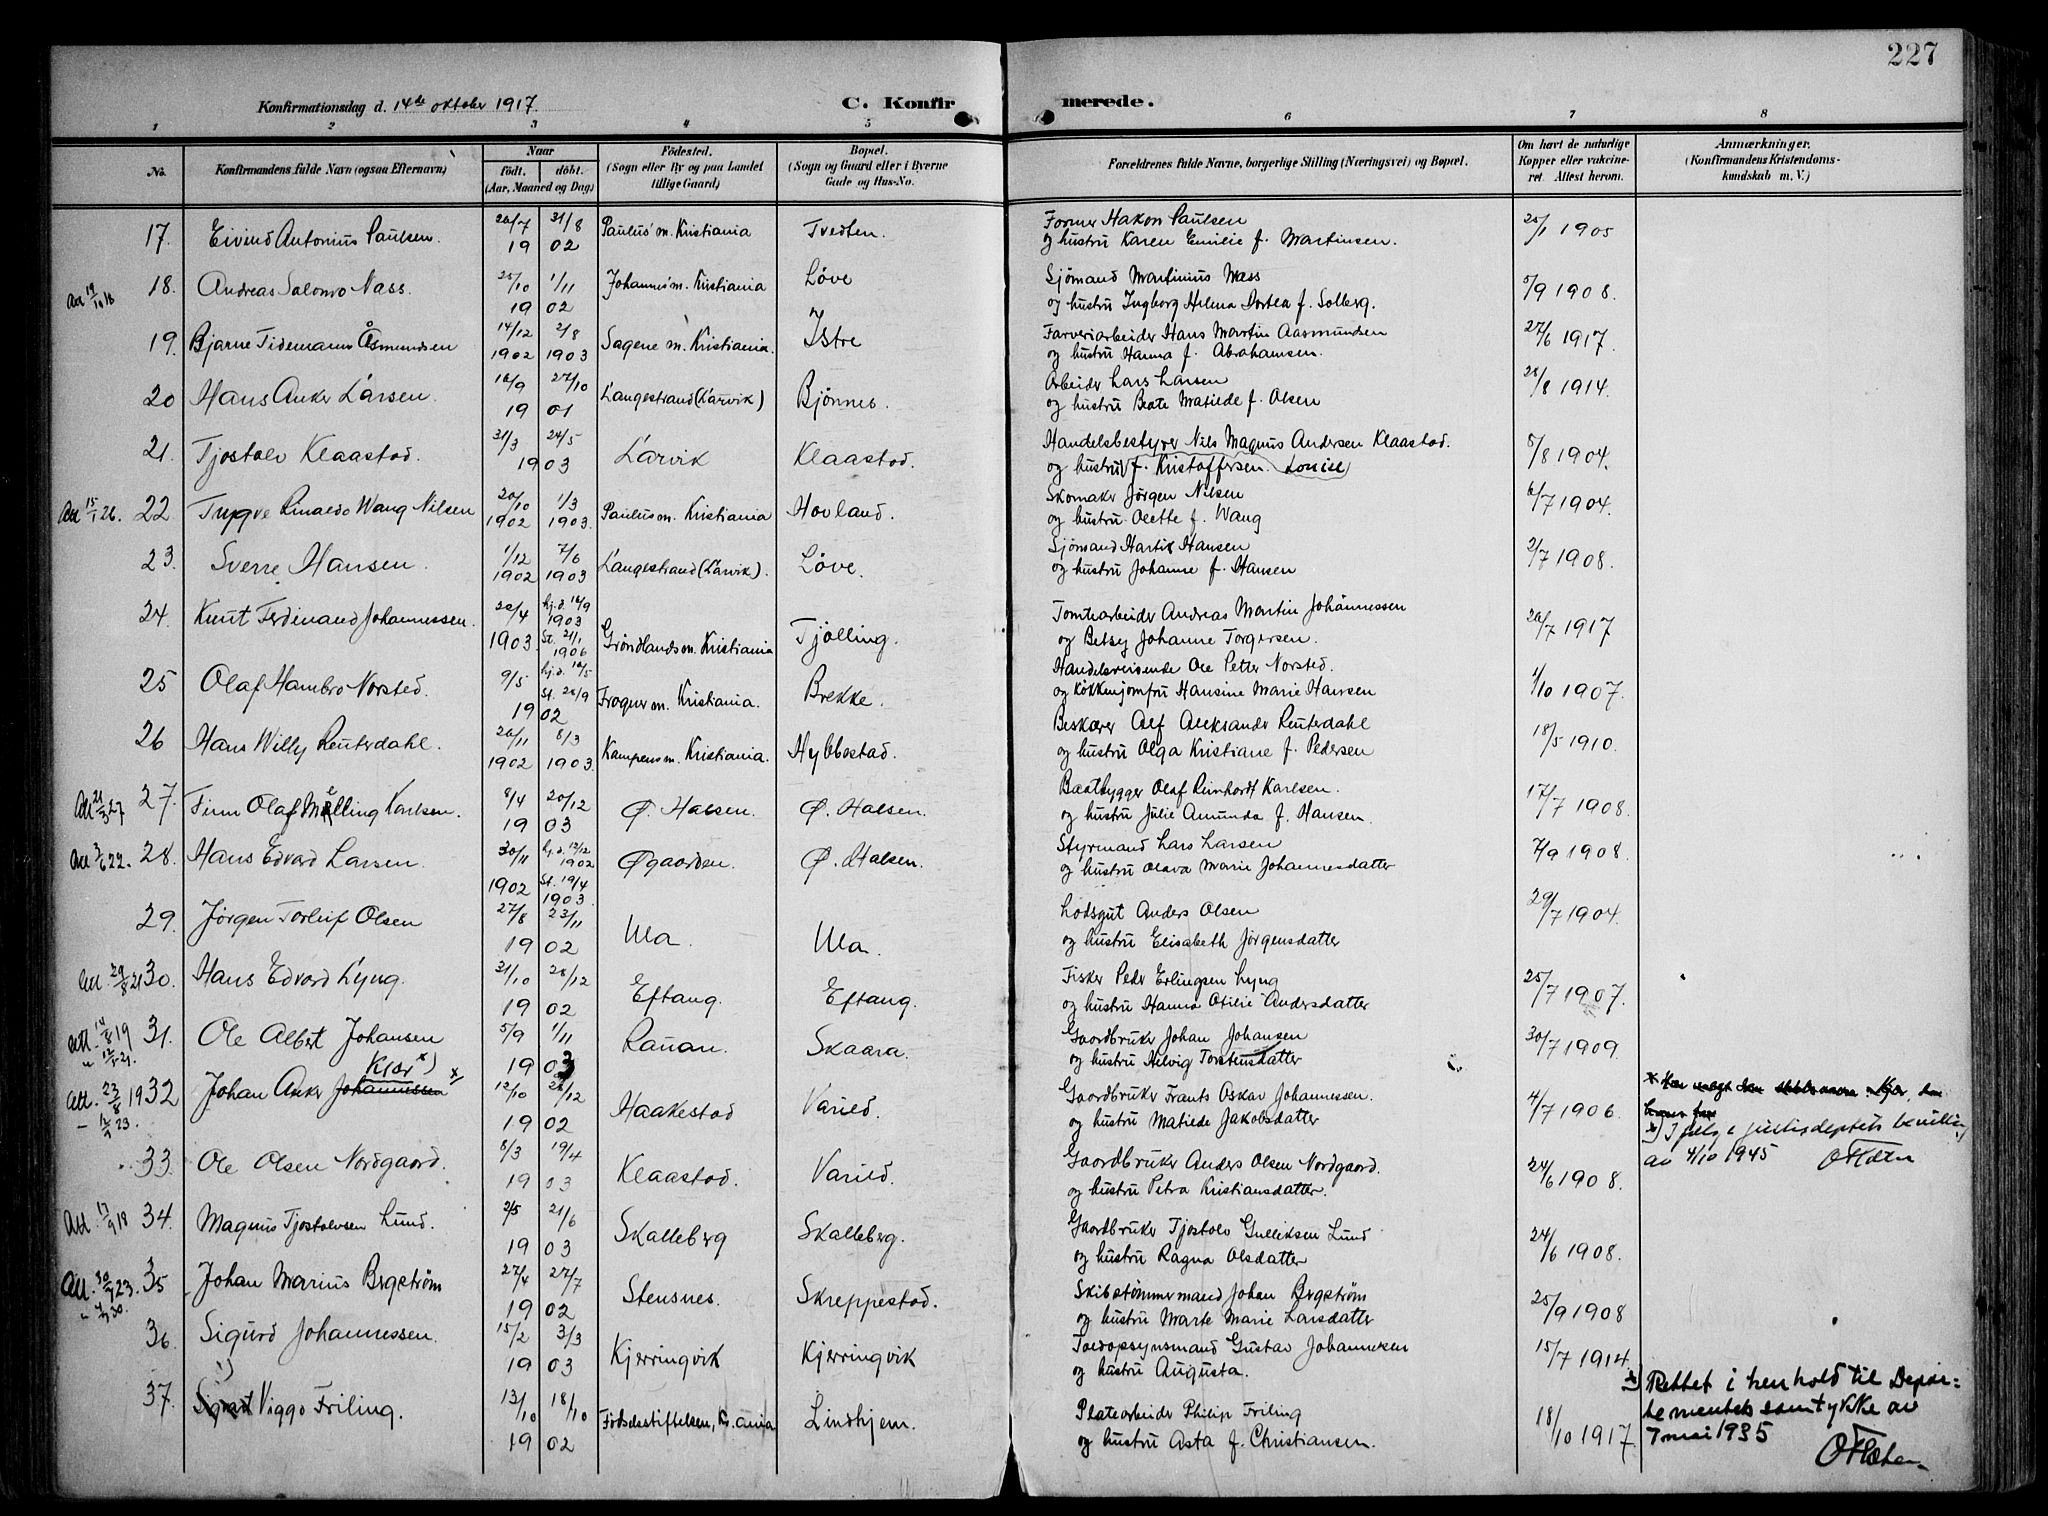 227
Konfirmationsdag d. 14de oktober 1917.
C. Konfirmerede.
1 2 3 4 5 6 7 8
No.
Konfirmandens fulde Navn (ogsaa Efternavn)
Naar
født. døbt.
(Aar, Maaned og Dag)
Fødested.
(Sogn eller By og paa Landet
tillige Gaard)
Bopæl.
(Sogn og Gaard eller i Byerne
Gade og Hus-No.
Forældrenes fulde Navne, borgerlige Stilling (Næringsvei) og Bopæl.
Om havt de naturlige
Kopper eller vakcine-
ret. Attest herom.
Anmærkninger.
(Konfirmandens Kristendoms-
kundskab m. V.)
17. Eivind Antonius Paulsen. 20/7 31/8 Paulus m. Kristiania Tvedten. Former Hakon Paulsen 25/1 1905
19 02 og hustru Karen Emilie f. Martinsen.
Att 19/10 18 18. Andreas Salomo Næss. 25/10 1/11 Johannes m. Kristiania Løve Sjømand Martinius Næss 5/9 1908.
19 02 og hustru Ingborg Helena Dortea f. Solberg.
19. Bjarne Tidemann Åsmundsen 14/12 2/8 Sagene m. Kristiania. Istre Farveriarbeider Hans Martin Aasmundsen 27/6 1917.
1902 1903 og hustru Hanna f. Abrahamsen.
20 Hans Anker Larsen. 16/9 27/10 Langestrand (Larvik) Bjønnes. Arbeider Lars Larsen 28/8 1914.
19 01 og hustru Beate Matilde f. Olsen
21. Tjostolv Klaastad. 31/3 24/5 Larvik Klaastad. Handelsbestyrer Nils Magnus Andersen Klaastad. 5/8 1904.
19 03 og hustru f. Kristoffersen. Louise
Att 15/1 26. 22 Trygve Rinaldo Wang Nilsen 20/10 1/3 Paulus m. Kristiania Hovland. Skomaker Jørgen Nilsen 6/7 1904.
1902 1903. og hustru Olette f. Wang
23. Sverre Hansen. 1/12 7/6 Langestrand (Larvik). Løve. Sjømand Hartvik Hansen 2/7 1908.
1902 1903 og hustru Johanne f. Hansen
24. Knut Ferdinand Johannessen. 20/4 hj.d. 16/9 1903 Grøndlands m. Kristiania Tjølling. Tomtearbeider Andreas Martin Johannessen 20/7 1917
1903. St. 21/1 1906 og Betsy Johanne Torgersen.
25 Olaf Hambro Norsted. 9/5 hj.d. 16/5 Frogner m. Kristiania. Brekke. Handelsreisende Ole Petter Norsted. 1/10 1907.
St. 28/9
19 02 og køkkenjomfru Hansine Marie Hansen
26 Hans Willy Reuterdahl. 20/11 8/3 Kampens m. Kristiania. Hybbestad. Beskærer Alf Aleksander Reuterdahl 18/5 1910.
1902 1903. og hustru Olga Kristiane f. Pedersen
Att 21/3 27 27. Finn Olaf Melling Karlsen. 8/4 20/12 Ø. Halsen. Ø. Halsen. Baatbygger Olaf Reinhardt Karlsen. 17/7 1908.
19 03 og hustru Julie Amunda f. Hansen.
Att 3/6 22. 28. Hans Edvard Larsen. 30/11 hj.d. 12/12 1902 Øgaarden. Ø. Halsen. Styrmand Lars Larsen 7/9 1908.
1902 St. 19/4 1903. og hustru Olava Marie Johannesdatter
29. Jørgen Torleif Olsen 27/8 23/11 Ula. Ula. Lodsgut Anders Olsen 29/7 1904.
19 02 og hustru Elisabeth Jørgensdatter
Att. 29/8 21 30. Hans Edvard Lyng. 31/10 28/12 Eftang. Eftang. Fisker Peder Erlingsen Lyng 25/7 1907.
19 02 og hustru Hanna Otilie Andersdatter
Att. 14/8 19 31. Ole Albert Johansen 5/9 1/11 Rauan. Skaara. Gaardbruker Johan Johansen 30/7 1909.
" 12/5 21. 19 03 og hustru Helvig Torstensdatter
Kjær x)
Att. 23/8 19 32 Johan Anker Johannessen x) 12/10 28/12 Haakestad Varild. Gaardbruker Frants Oskar Johannessen. 4/7 1906.
19 02 og hustru Matilde Jakobsdatter
x) I følge justisdeptets bevilling
av 4/10 1945
33. Ole Olsen Nordgaard. 8/3 19/4 Klaastad. Varild. Gaardbruker Anders Olsen Nordgaard. 24/6 1908.
19 03 og hustru Petra Kristiansdatter.
Att. 17/9 18 34. Magnus Tjostolvsen Lund. 2/5 21/6 Skalleberg Skalleberg. Gaardbruker Tjostolv Gulliksen Lund 24/6 1908.
19 03 og hustru Ragna Olsdatter
Att. 30/7 23. 35 Johan Marius Bergstrøm 27/4 27/7 Stensnes. Skreppestad. Skibstømmermand Johan Bergstrøm 25/9 1908
19 02 og hustru Marte Marie Larsdatter
36 Sigurd Johannessen. 15/2 3/3 Kjerringvik Kjerringvik Toldopsynsmand Gustav Johannesen 15/7 1914.
19 03 og hustru Augusta.
37. Viggo Friling. 13/10 18/10 Fødselsstiftelsen, Kr.ania Lindhjem. Platearbeider Philip Friling 18/10 1917.
19 02 og hustru Asta f. Christiansen.
x) Rettet i henhold til Depar=
tementets samtykke av
7 mai 1935